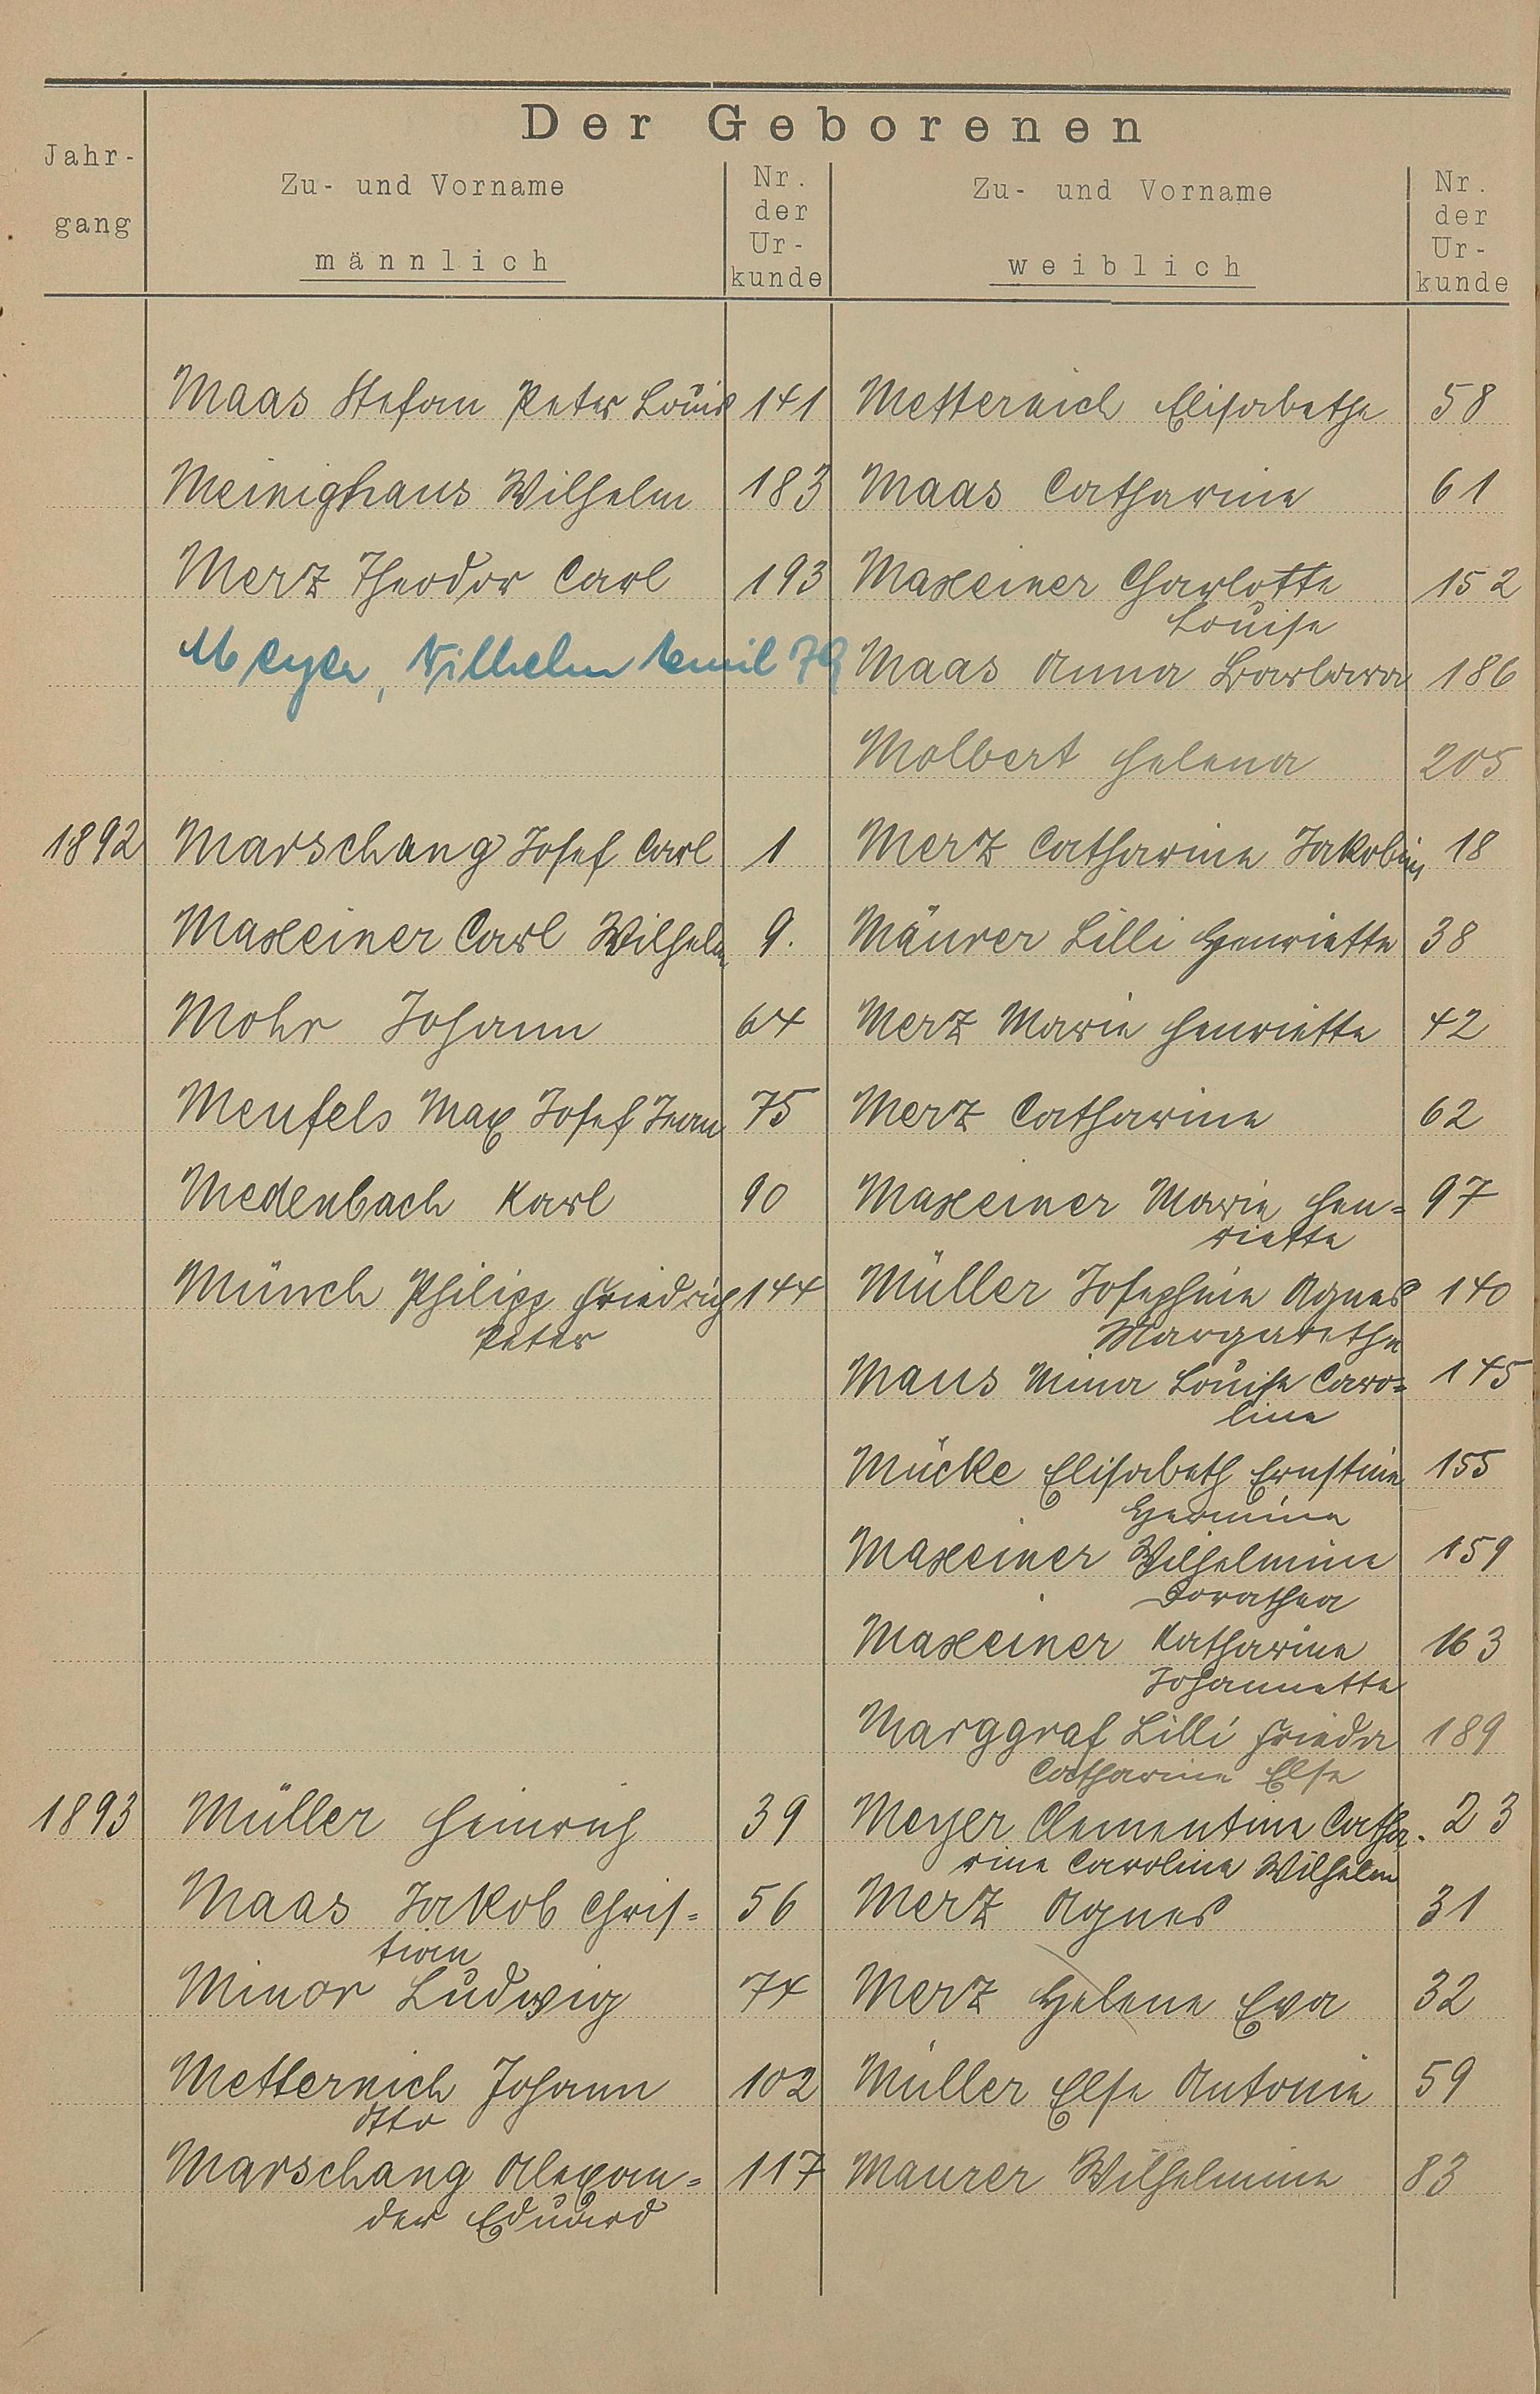 Der Geborenen
Jahr-
gang
Zu- und Vorname
männlich
Nr.
der
Ur-
kunde
Zu- und Vorname
weiblich
Nr.
der
Ur-
kunde
Maas Stefan Peter Louis 141 Metternich Elisabethe 58
Meinighaus Wilhelm 183 Maas Catharine 61
Merz Theodor Carl 193 Maxeiner Charlotte 152
Louise
Meyer, Wilhelm Emil 79 Maas Anna Barbara 186
Molbert Helena 205
1892 Marschang Josef Carl 1 Merz Catharine Jakobin 18
Maxeiner Carl Wilhelm 9. Mäurer Lilli Henriette 38
Mohr Johann 64 Merz Marie Henriette 42
Menfels Max Josef Jean 75 Merz Catharine 62
Medenbach Karl 90 Maxeiner Marie Hen= 97
riette
Münch Philipp Friedrich 144 Müller Josephine Agnes 140
Peter Margarethe
Maus Mina Louise Caro= 145
line
Mücke Elisabeth Ernstine 155
Hermine
Maxeiner Wilhelmine 159
Dorathea
Maxeiner Katharine 163
Johannette
Marggraf Lilli Frieda 189
Catharine Else
1893 Müller Heinrich 39 Meyer Clementine Catha- 23
rine Caroline Wilhelm
Maas Jakob Chris= 56 Merz Agnes 31
tian
Minor Ludwig 74 Merz Helene Eva 32
Metternich Johann 102 Müller Else Antonie 59
Otto
Marschang Alexan= 117 Maurer Wilhelmine 83
der Eduard